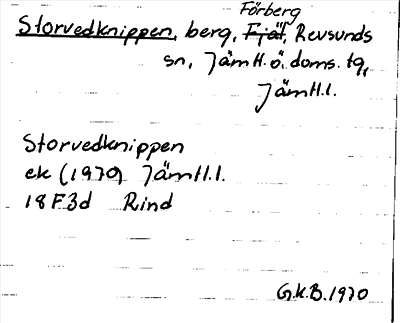 Förberg
Storvedknippen, berg, Fjäl, Revsunds
sn, Jämtl. ö. doms. tg,
Jämtl. l.
Storvedknippen
ek (1970) Jämtl. l.
18F3d Rind
G.K.B. 1970